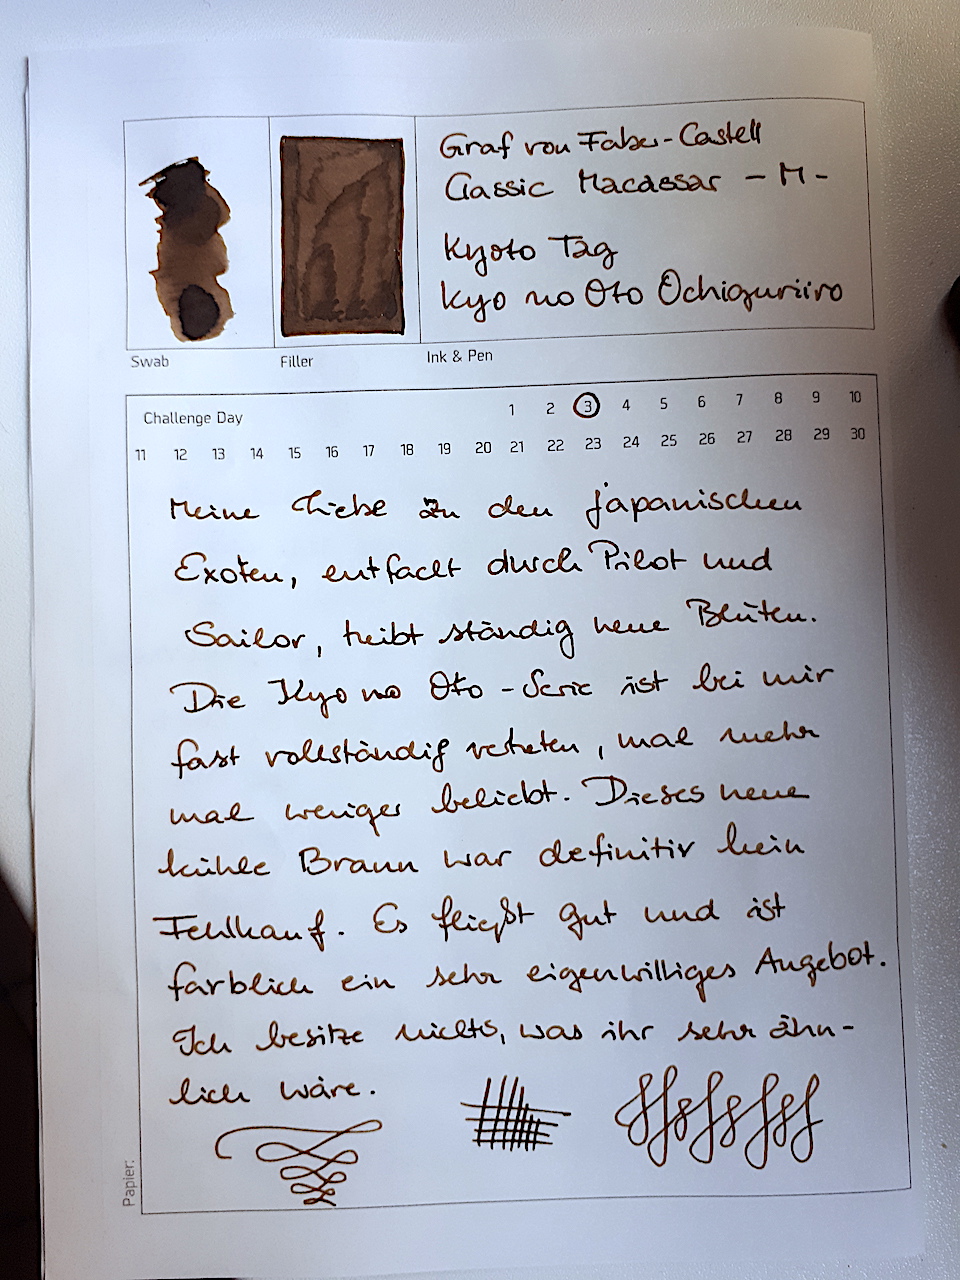 Graf von Faber-Castell
Classic Macassar - M -
Kyoto TAG
Kyo no Oto Ochiguriiro
Swab
Filler
Ink & Pen
Challenge Day
1 2 3 4 5 6 7 8 9 10
11 12 13 14 15 16 17 18 19 20 21 22 23 24 25 26 27 28 29 30
Meine Liebe zu den japanischen
Exoten, entfacht durch Pilot und
Sailor, treibt ständig neue Blüten.
Die Kyo no Oto - Serie ist bei mir
fast vollständig vertreten, mal mehr
mal weniger beliebt. Dieses neue
kühle Braun war definitiv kein
Fehlkauf. Es fließt gut und ist
farblich ein sehr eigenwilliges Angebot.
Ich besitze nichts, was ihr sehr ähn-
lich wäre.
Papier: